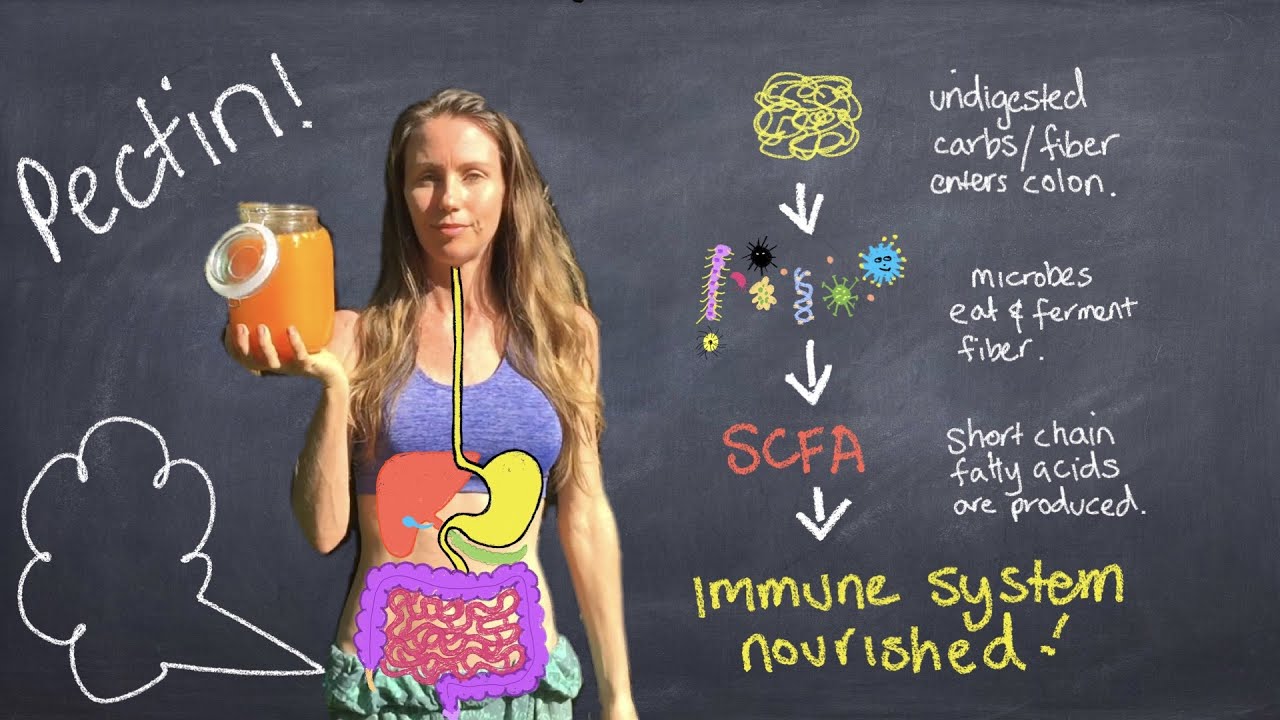 Pectin!
undigested
carbs/fiber
enters colon.
microbes
eat & ferment
fiber.
SCFA
short chain
fatty acids
are produced.
immune system
nourished!